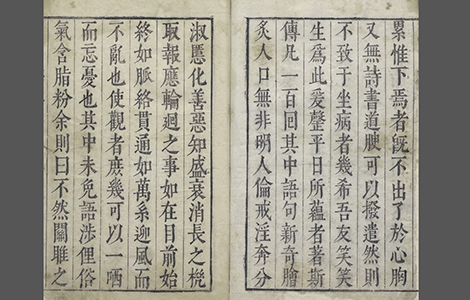 累惟下焉者既不出了於心胸
又無詩書道腴可以撥遣然則
不致于坐病者幾希吾友笑笑
生爲此爰罄平日所蘊者著斯
傳凡一百回其中語句新奇膾
炙人口無非明人倫戒淫奔分
淑慝化善惡知盛衰消長之機
取報應輪迴之事如在目前始
終如脈絡貫通如萬系迎風而
不亂也使觀者庶幾可以一哂
而忘憂也其中未免語涉俚俗
氣含脂粉余則曰不然關雎之